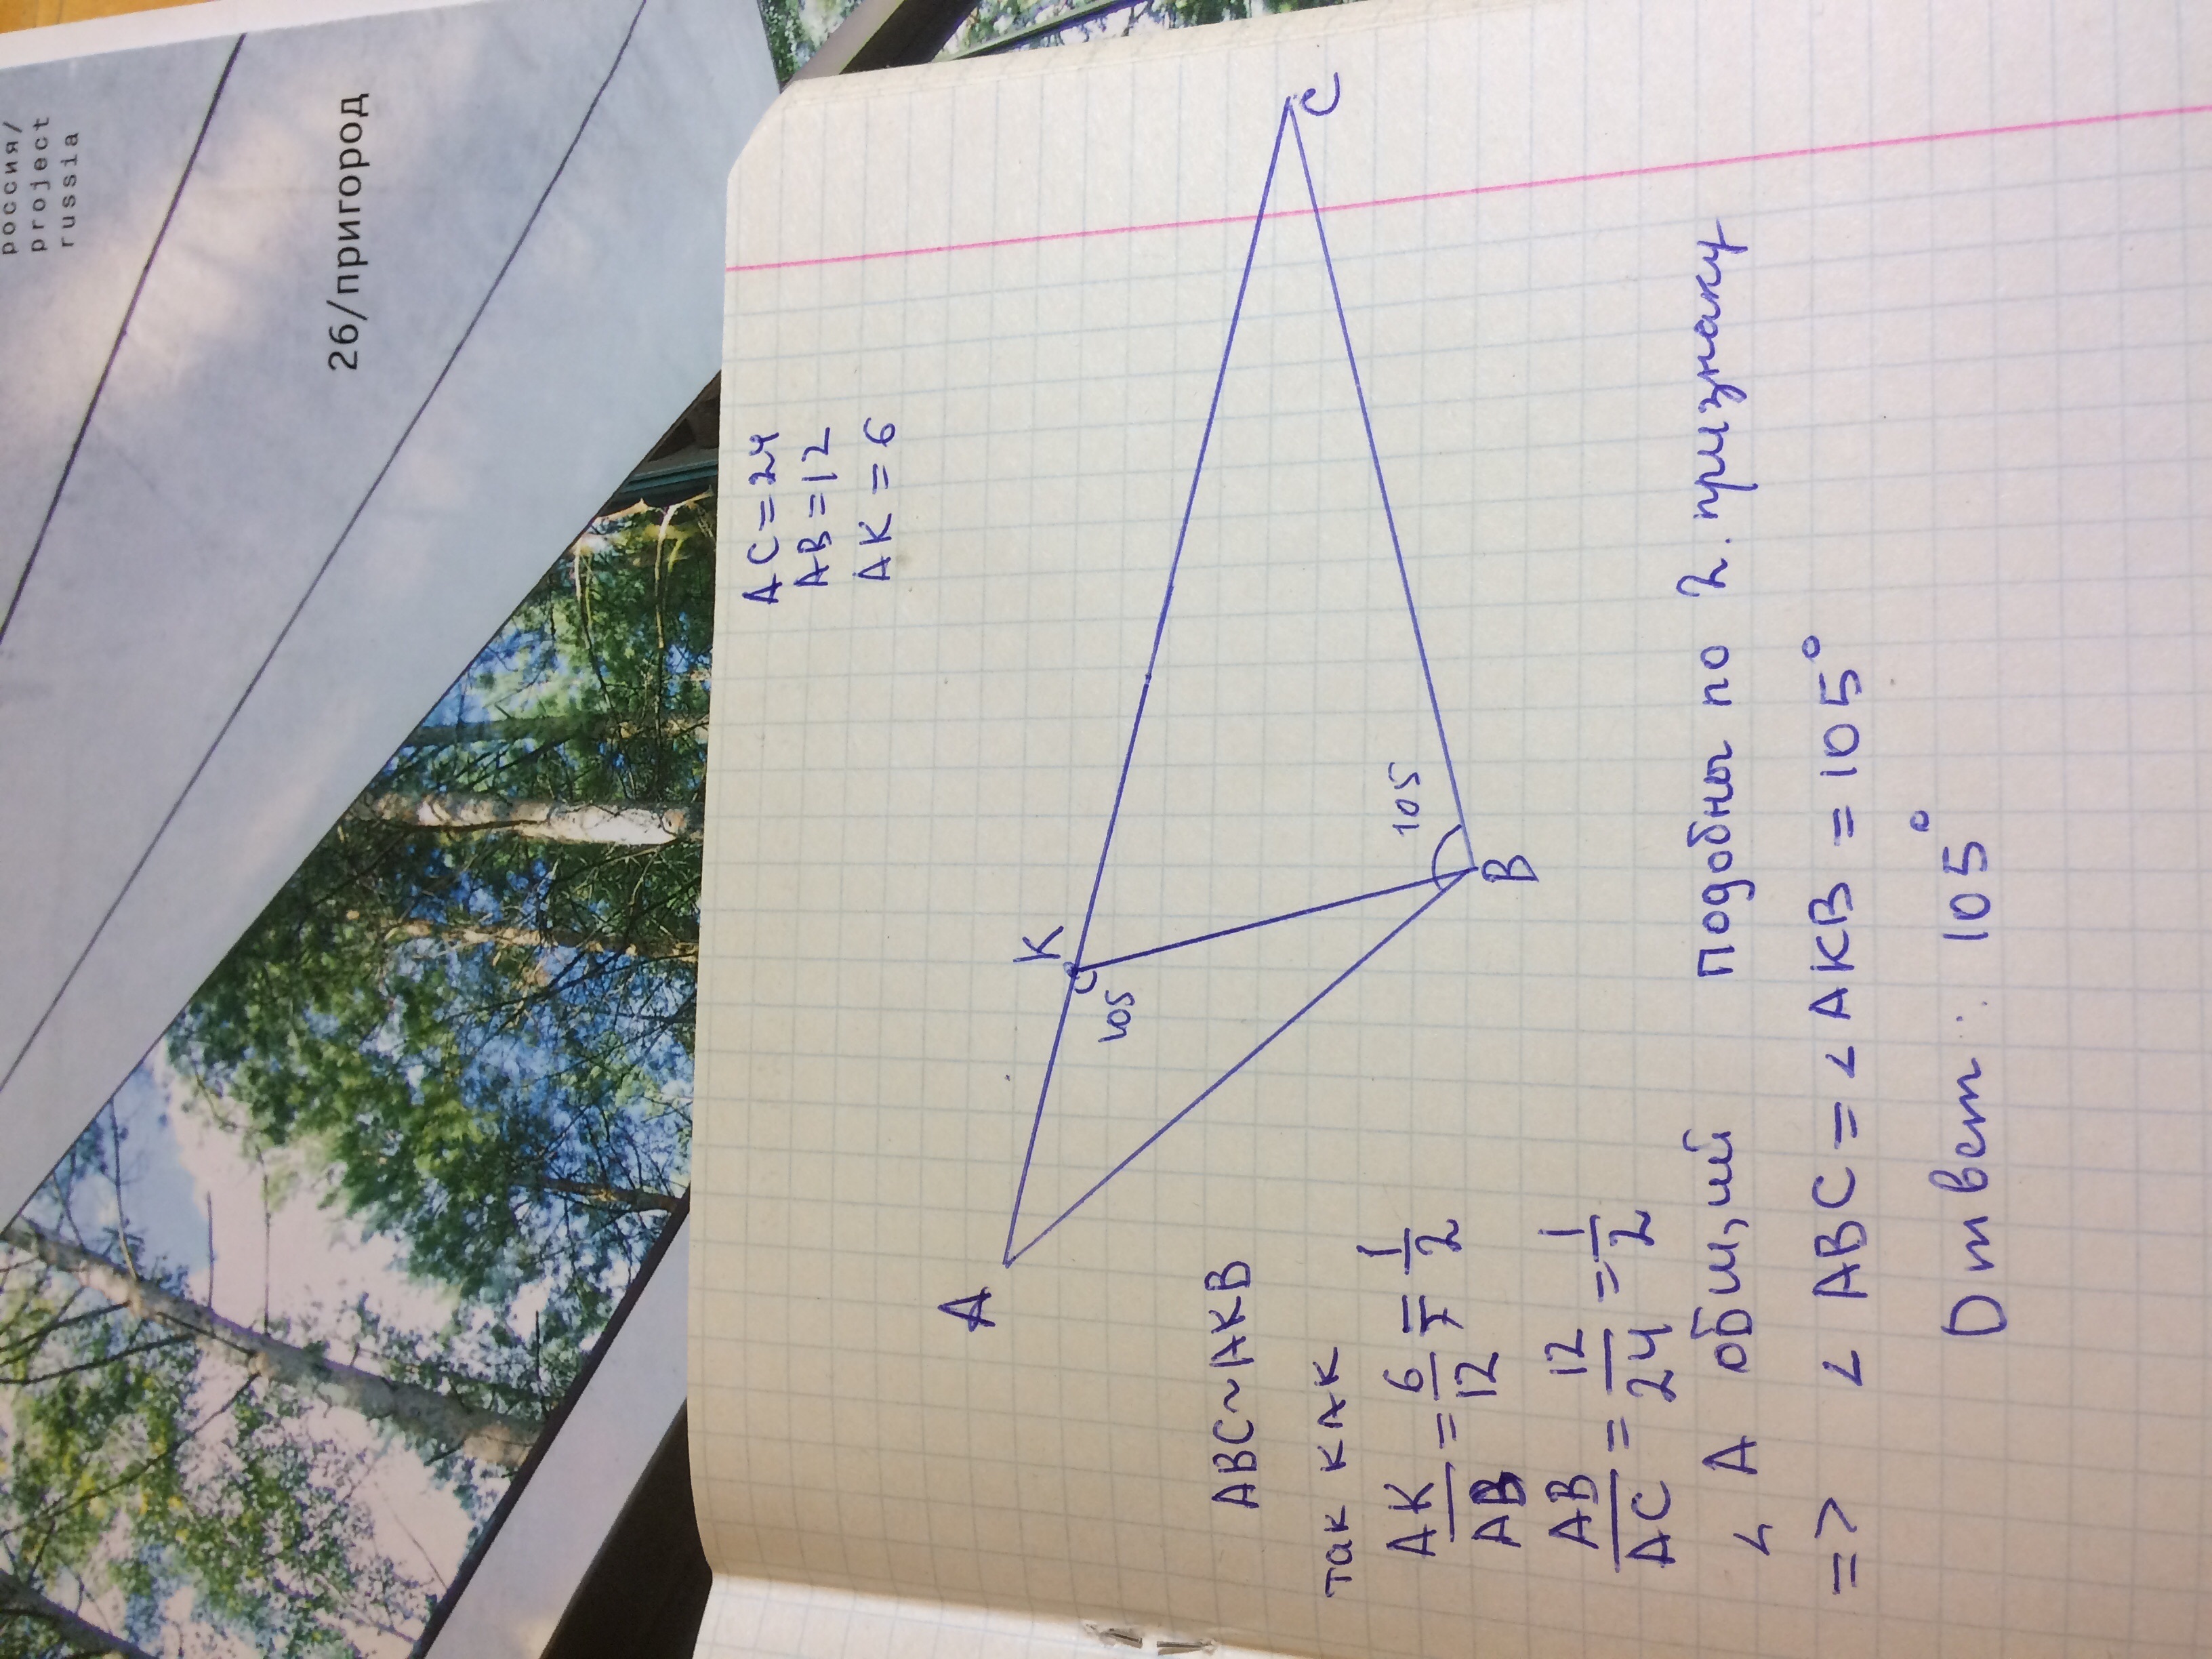 россия/
project
russia
26/пригород
AC = 24
AB = 12
AK = 6
A
K
C
B
105
105
ABC ~ AKB
так как
AK/AB = 6/12 = 1/2
AB/AC = 12/24 = 1/2
∠ A общий подобны по 2. признаку
=> ∠ ABC = ∠ AKB = 105°
Ответ: 105°